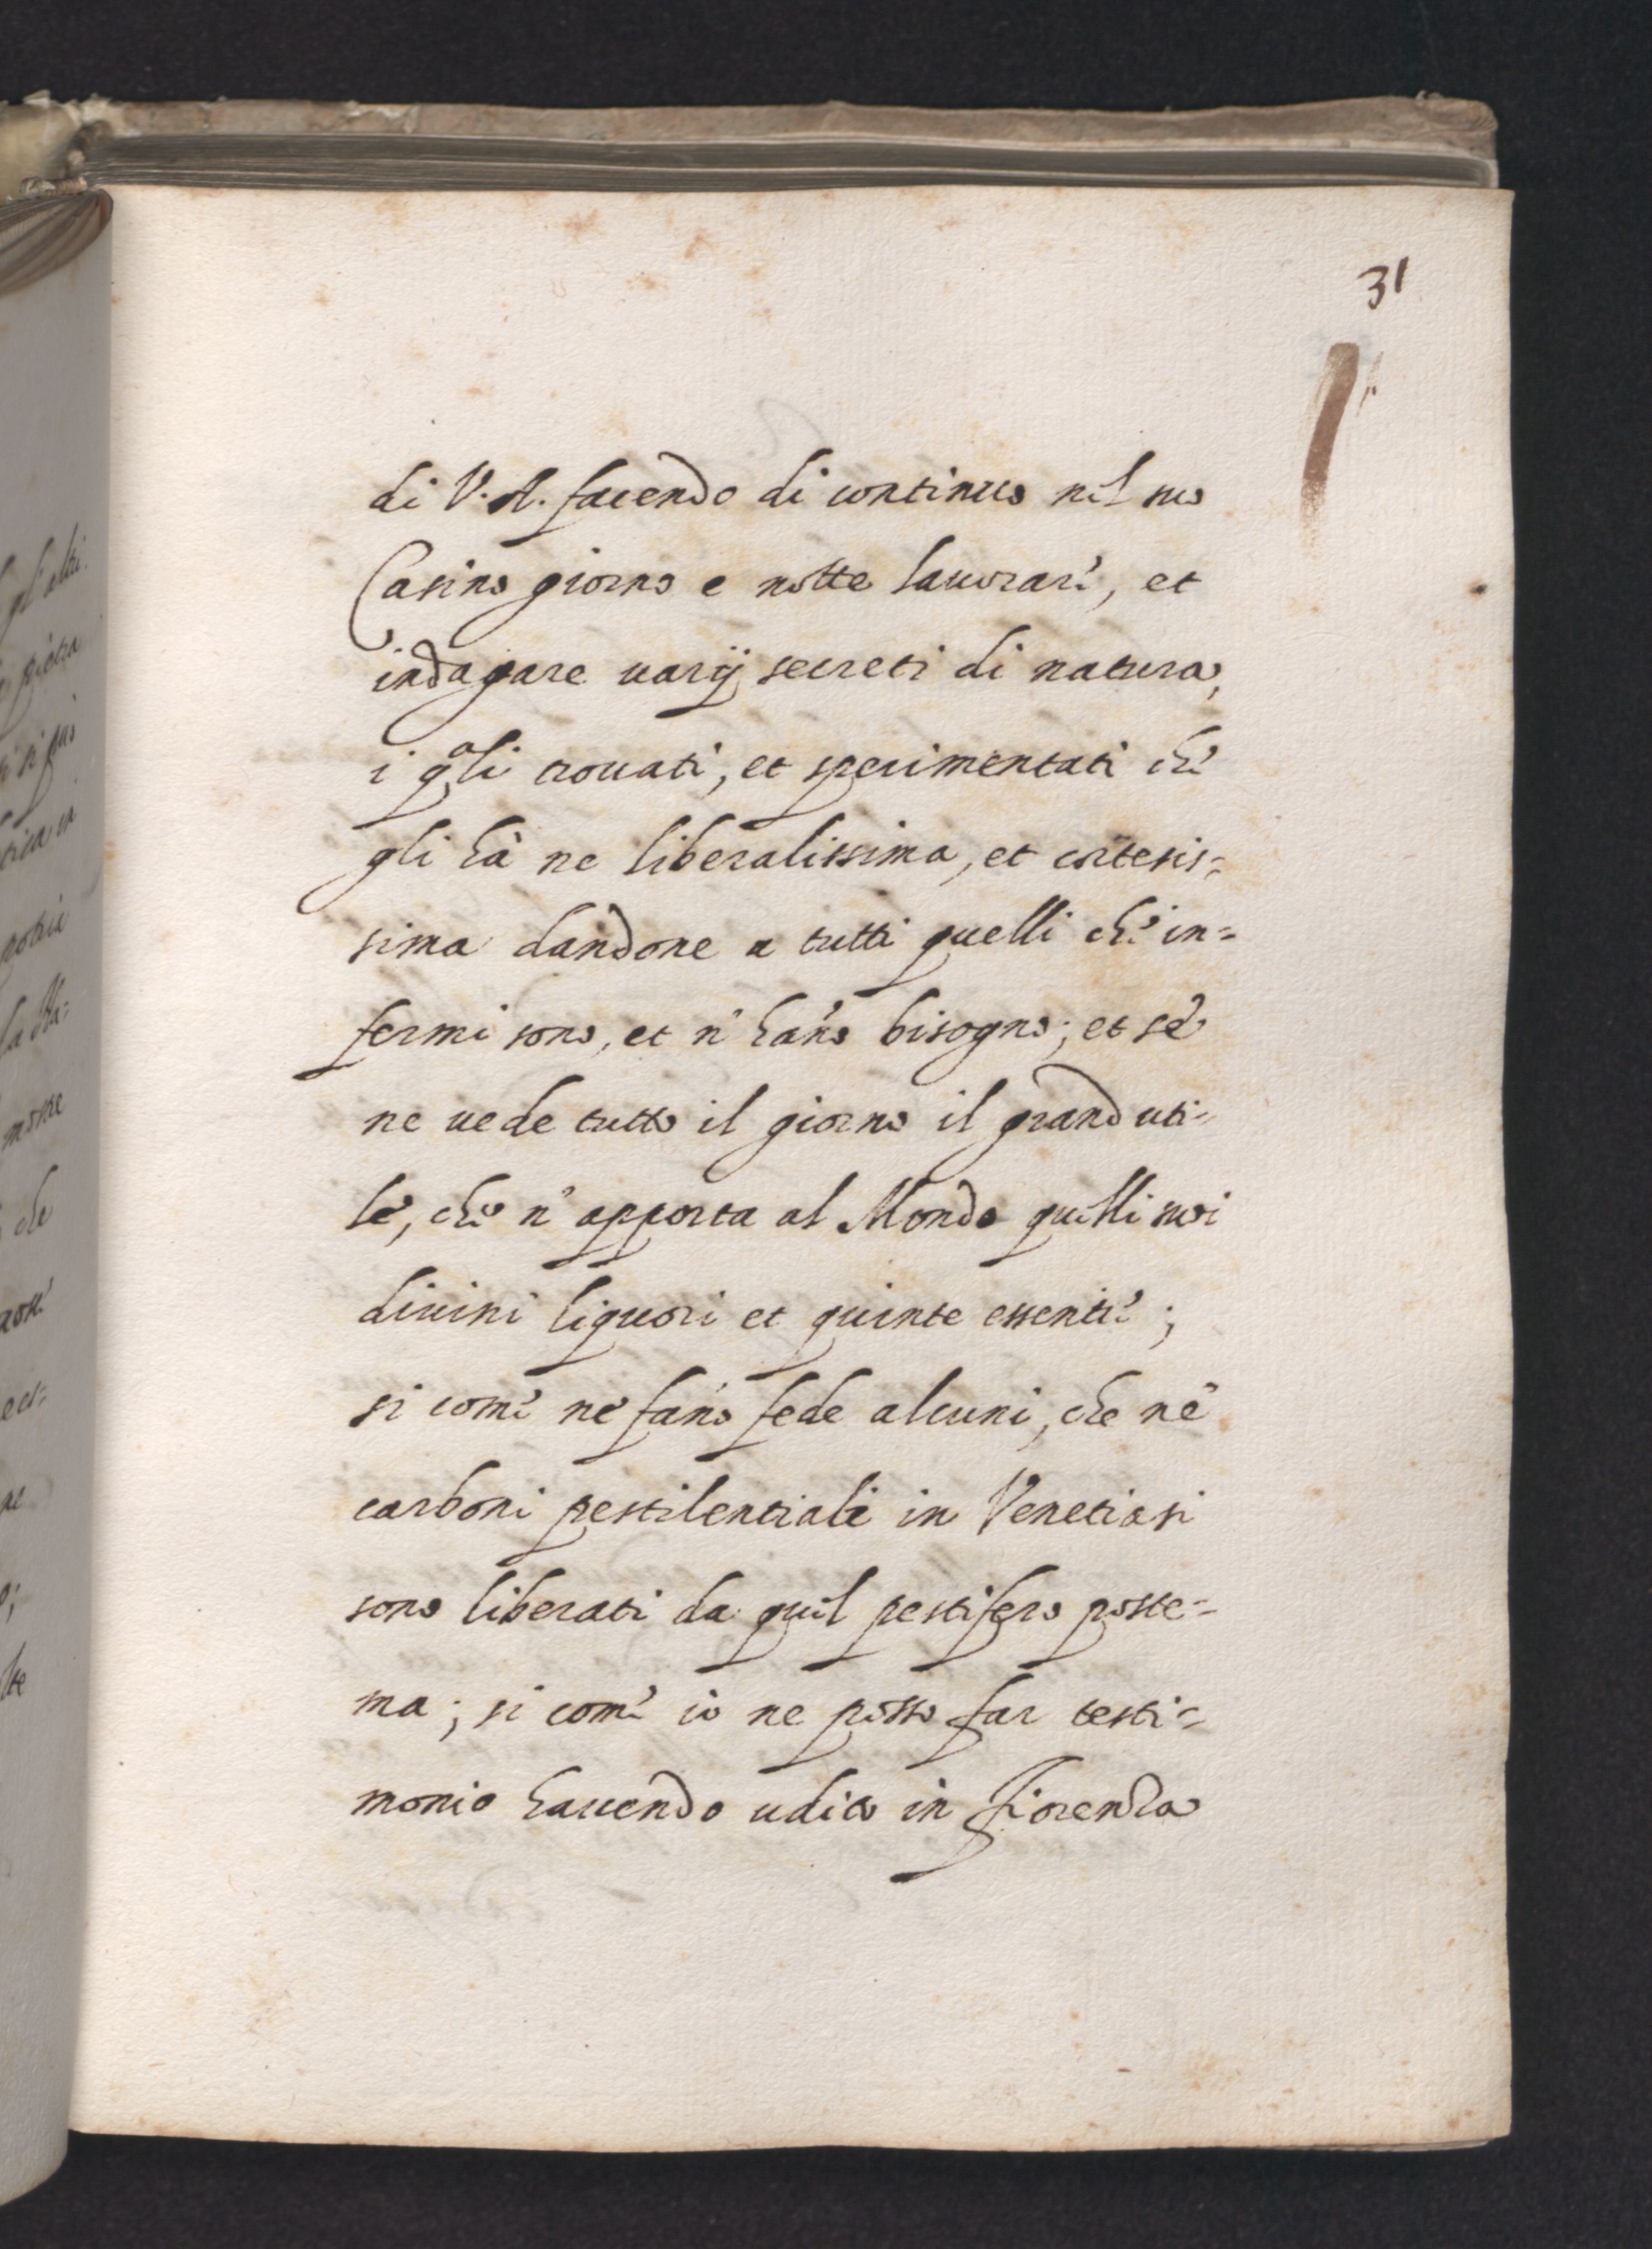 31
di V. A. facendo di continuo nel suo
Casino giorno e notte lauorare, et
indagare varij secreti di natura,
i qali trouati, et sperimentati che
gli hà ne liberalissima, et cortesis=
sima dandone a tutti quelli che in=
fermi sono, et n'hano bisogno; et se
ne uede tutto il giorno il grand uti=
le, che n'apporta al Mondo quelli suoi
diuini liquori et quinte essentie;
si come ne fano fede alcuni, che ne
carboni pestilentiali in Venetia si
sono liberati da quel pestifero poste=
ma; si come io ne posso far testi=
monio hauendo udito in Fiorenza